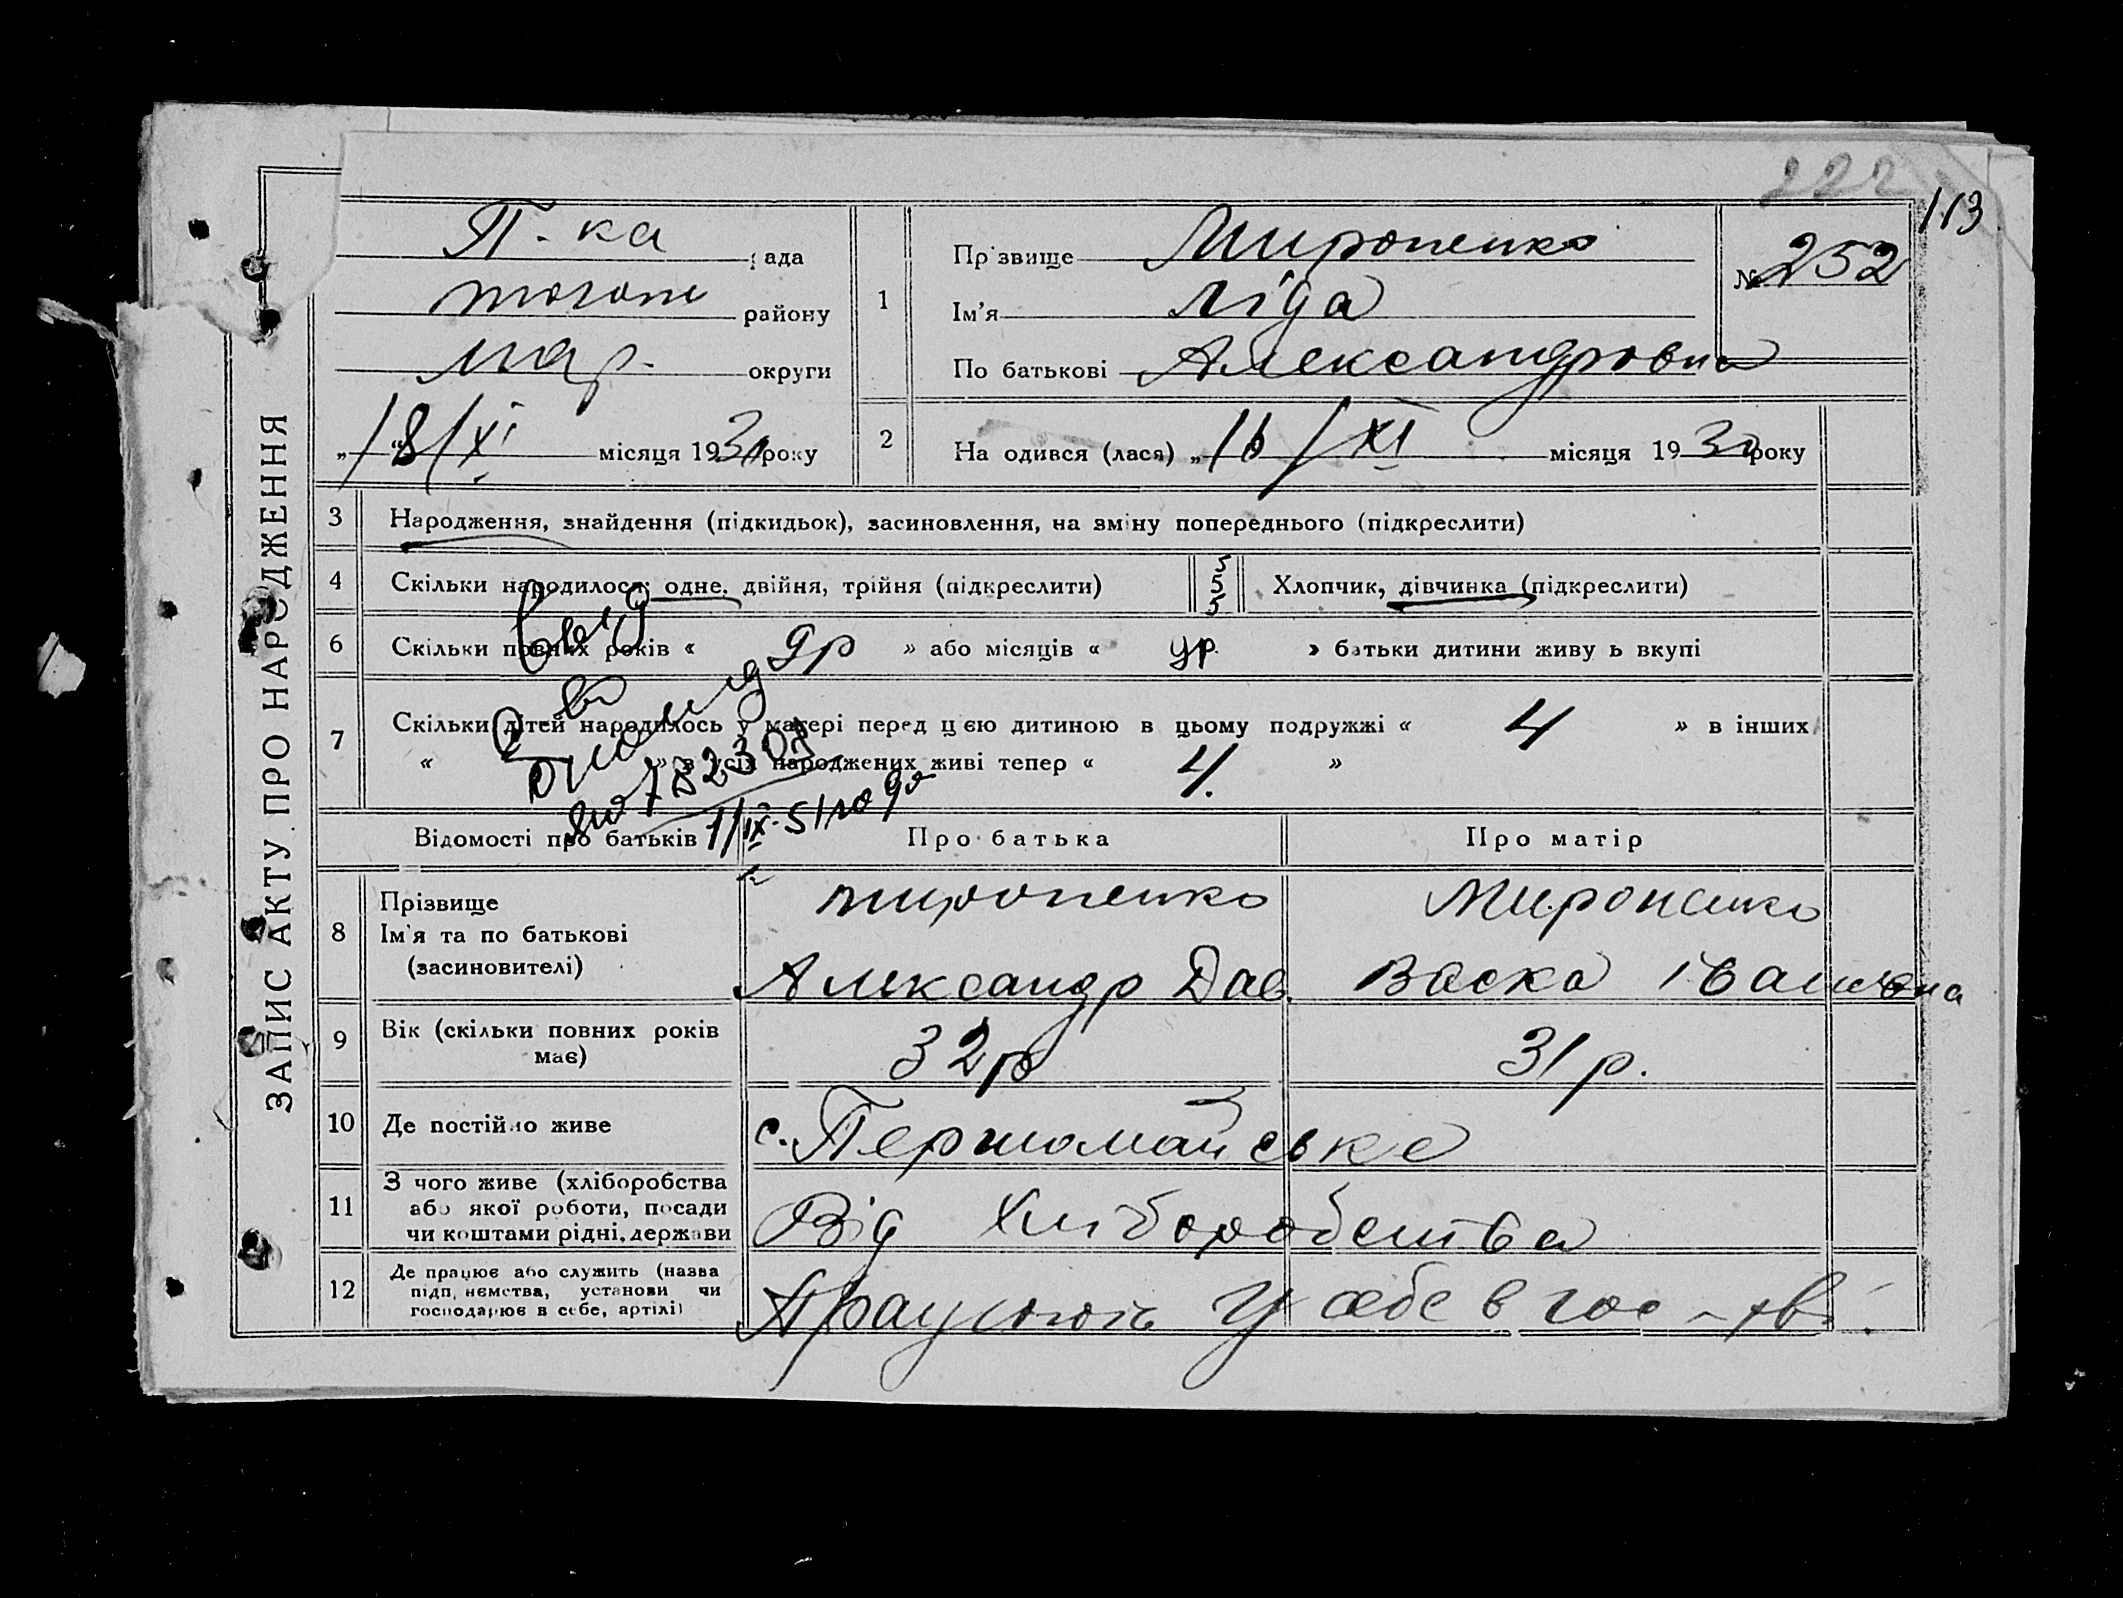 222
113
ЗАПИС АКТУ ПРО НАРОДЖЕННЯ
П-ка рада
району
мар. округи
„18/XI місяця 1930 року
1
Прізвище Мироненко
Ім'я Ліда
По батькові Александровна
№ 252
2
Народився (лася) „16/XI місяця 1930 року
3 Народження, знайдення (підкидьок), засиновлення, на зміну попереднього (підкреслити)
4 Скільки народилося: одне, двійня, трійня (підкреслити)
5
5
5
Хлопчик, дівчинка (підкреслити)
6 Скільки повних років « 9р » або місяців « » батьки дитини живуть вкупі
7 Скільки дітей народилось у матері перед цією дитиною в цьому подружжі « 4 » в інших
« » в усіх народжених живі тепер « 4. »
Выд
св-во
1/IX-51 года
Відомості про батьків
Про батька
Про матір
8 Прізвище
Ім'я та по батькові
(засиновителі)
Мироненко
Александр Дав.
Мироненко
Васка Івановна
9 Вік (скільки повних років
має)
32р
31р.
10 Де постійно живе
с. Першомайське
11 З чого живе (хліборобства
або якої роботи, посади
чи коштами рідні, держави
Від хліборобства
12 Де працює або служить (назва
підприємства, установи чи
господарює в себе, артілі)
Працюють у себе в гос-тві.